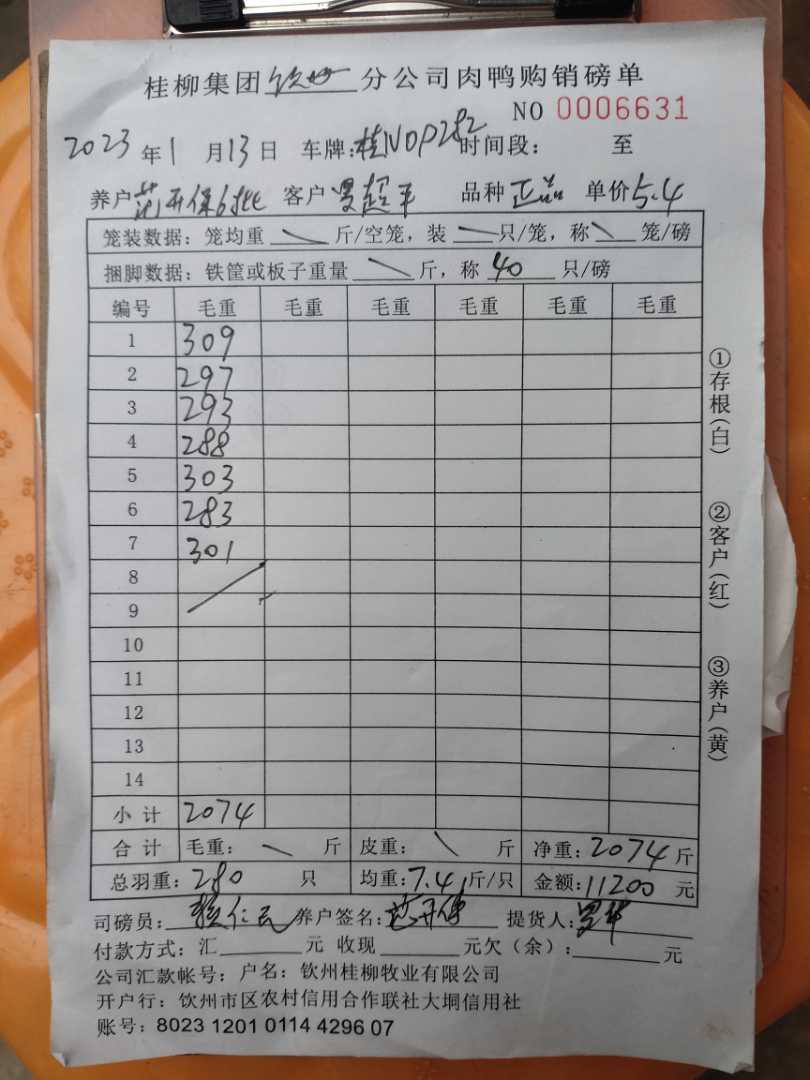 桂柳集团钦州分公司肉鸭购销磅单
NO 0006631
2023年1月13日 车牌:桂N0P282 时间段: 至
养户 开保 客户 罗超平 品种 正品 单价5.4
笼装数据: 笼均重 斤/空笼, 装 只/笼, 称 笼/磅
捆脚数据: 铁筐或板子重量 斤, 称 40 只/磅
编号 毛重 毛重 毛重 毛重 毛重 毛重
1 309
2 297
3 293
4 288
5 303
6 283
7 301
8
9
10
11
12
13
14
小计 2074
合计 毛重: 斤 皮重: 斤 净重: 2074斤
总羽重: 280 只 均重: 7.41斤/只 金额: 11200元
司磅员: 仁 养户签名: 提货人:
付款方式: 汇 元 收现 元欠(余): 元
公司汇款帐号: 户名: 钦州桂柳牧业有限公司
开户行: 钦州市区农村信用合作联社大垌信用社
账号: 8023 1201 0114 4296 07
①存根(白)
②客户(红)
③养户(黄)